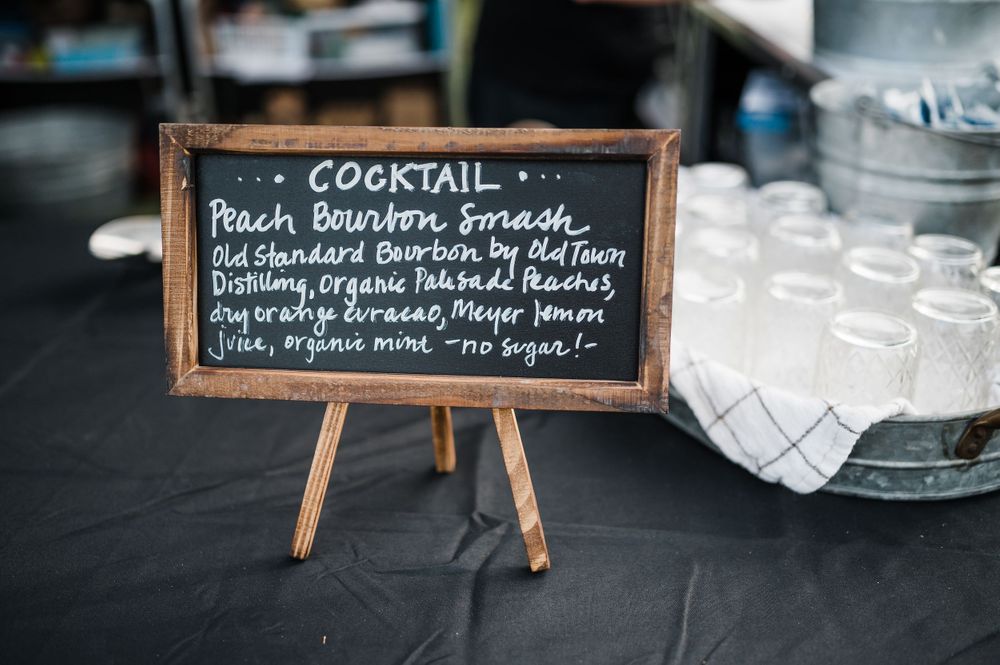 ... • COCKTAIL • ...
Peach Bourbon Smash
Old Standard Bourbon by Old Town
Distilling, organic Palisade Peaches,
dry orange curacao, Meyer lemon
juice, organic mint -no sugar!-